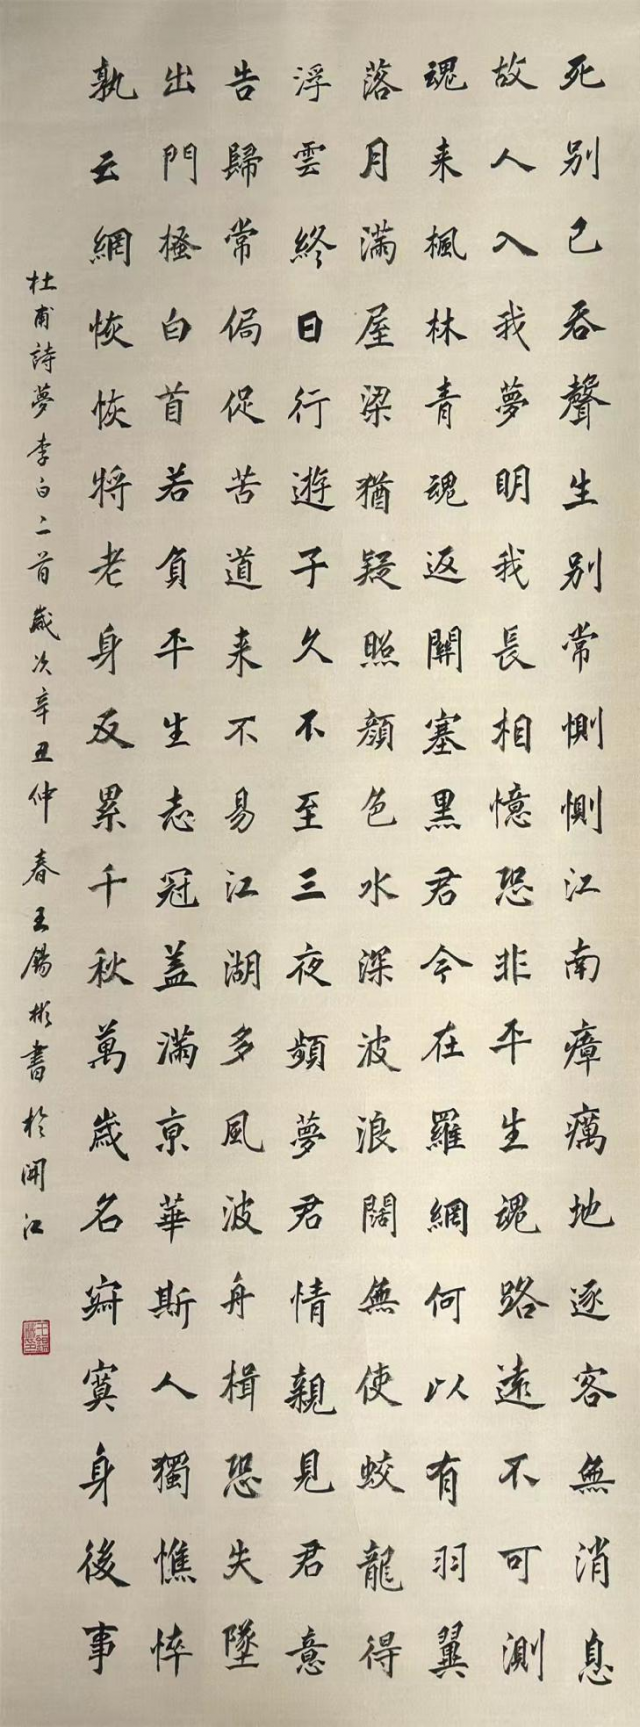 死别已吞聲生别常惻惻江南瘴癘地逐客無消息
故人入我夢明我長相憶恐非平生魂路遠不可測
魂来楓林青魂返關塞黑君今在羅網何以有羽翼
落月满屋梁猶疑照顔色水深波浪闊無使蛟龍得
浮雲終日行遊子久不至三夜頻夢君情親見君意
告歸常侷促苦道来不易江湖多風波舟楫恐失墜
出門搔白首若負平生志冠盖滿京華斯人獨憔悴
孰云網恢恢将老身反累千秋萬歲名寂寞身後事
杜甫詩夢李白二首歲次辛丑仲春王錫彬書於開江